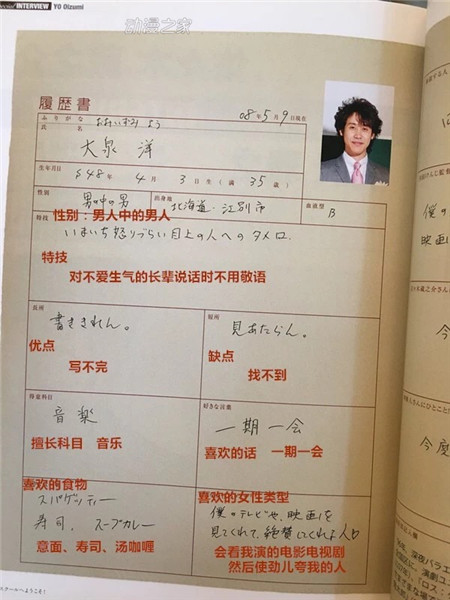 INTERVIEW YO Oizumi
动漫之家
履歴書
08年5月9日現在
ふりがな おおいずみ よう
氏名
大泉 洋
生年月日
S48年 4月 3日生 (満 35歳)
性別
男の中の男
出身地
北海道・江別市
血液型
B
性别：男人中的男人
特技
いまいち怒りづらい目上の人へのタメ口.
特技
对不爱生气的长辈说话时不用敬语
長所
書ききれん。
优点
写不完
短所
見あたらん。
缺点
找不到
得意科目
音楽
擅长科目 音乐
好きな言葉
一期一会
喜欢的话 一期一会
喜欢的食物
スパゲッティー
寿司、スープカレー
意面、寿司、汤咖喱
喜欢的女性类型
僕のテレビや、映画を
見てくれて、絶賛してくれる人
会看我演的电影电视剧
然后使劲儿夸我的人
僕の
映画
今
今度
スクールへようこそ！